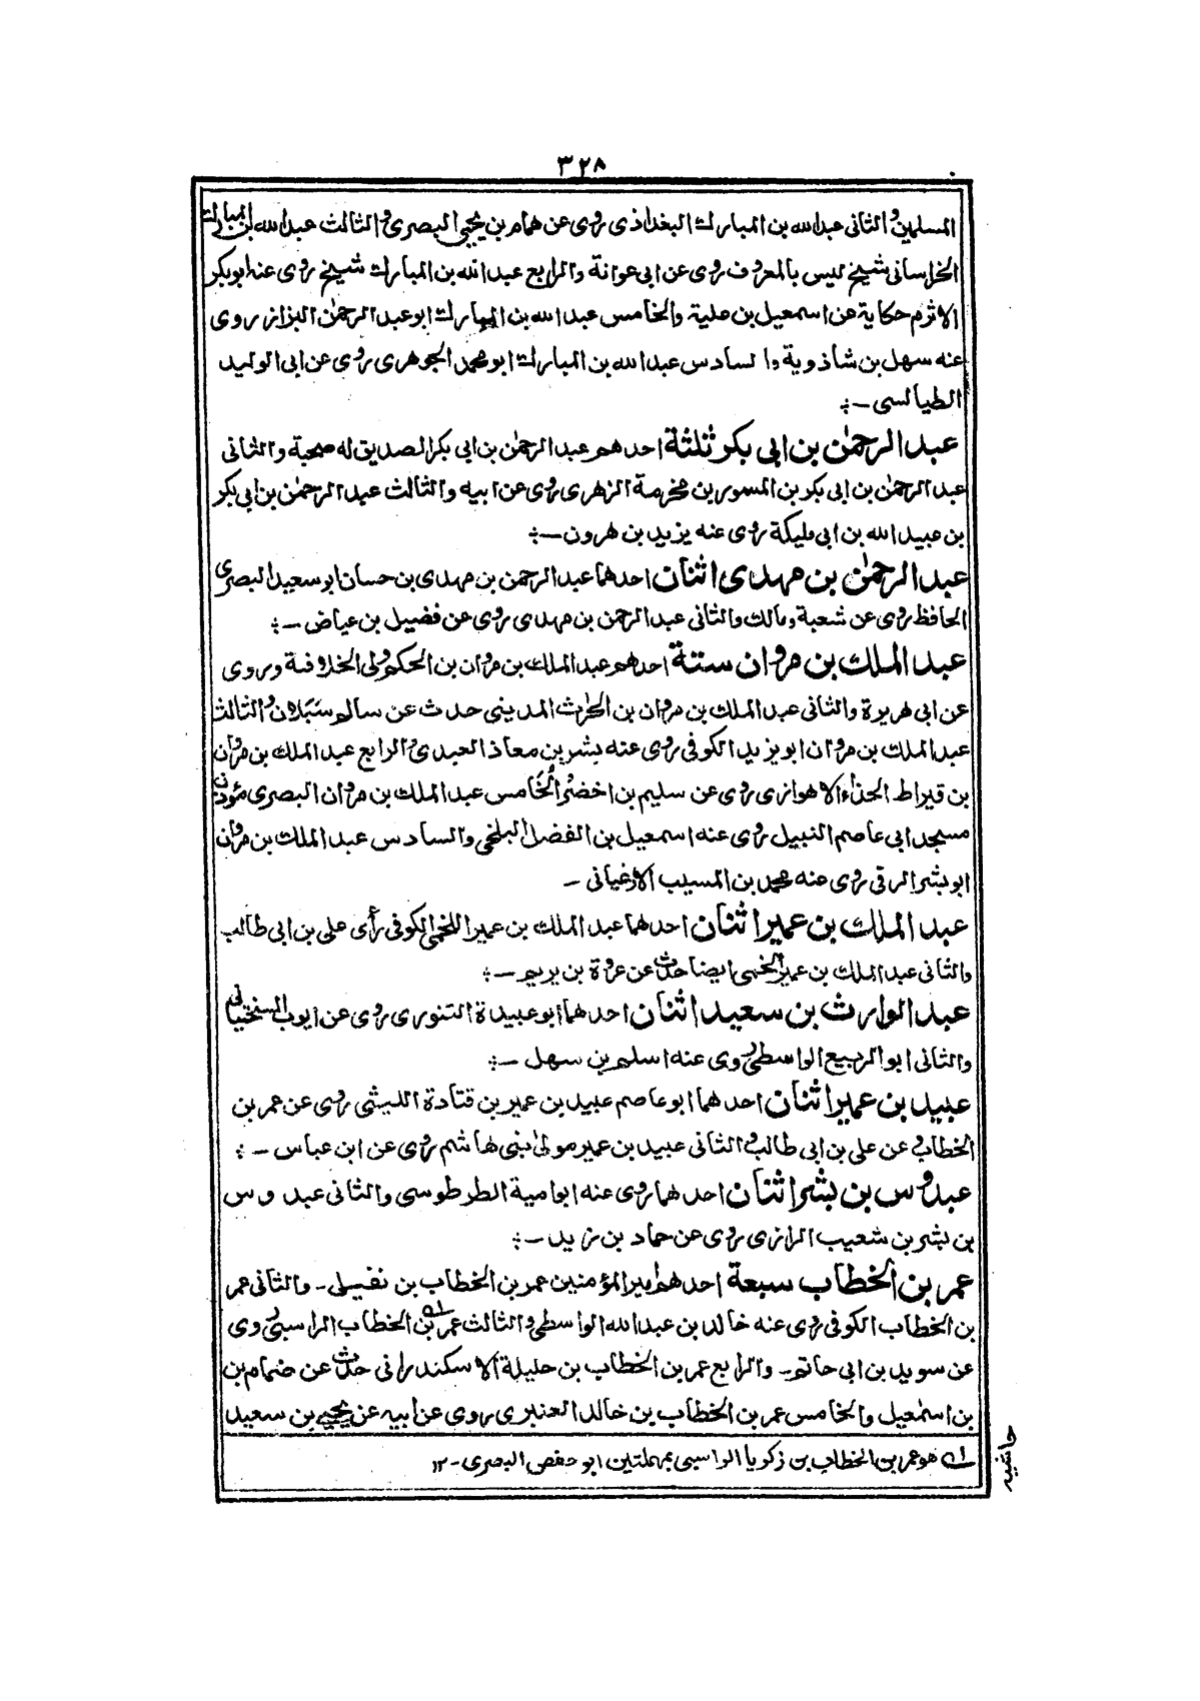 ٣٢٨
المسلمين والثانى عبدالله بن المبارك البغداذى روى عن همام بن يحيى البصرى والثالث عبدالله بن المبارك
الخراسانى شيخ ليس بالمعروف روى عن ابى عوانة والرابع عبدالله بن المبارك شيخ روى عنه ابوبكر
الاثرم حكاية عن اسمعيل بن علية والخامس عبدالله بن المبارك ابوعبدالرحمٰن البزاز روى
عنه سهل بن شاذوية والسادس عبدالله بن المبارك ابومحمد الجوهرى روى عن ابى الوليد
الطيالسى -
عبدالرحمٰن بن ابى بكر ثلثة احدهم عبدالرحمٰن بن ابى بكر الصديق له صحبة والثانى
عبدالرحمٰن بن ابى بكر بن المسور بن مخرمة الزهرى روى عن ابيه والثالث عبدالرحمٰن بن ابى بكر
بن عبيدالله بن ابى مليكة روى عنه يزيد بن هرون -
عبدالرحمٰن بن مهدى اثنان احدهما عبدالرحمن بن مهدى بن حسان ابوسعيد البصرى
الحافظ روى عن شعبة ومالك والثانى عبدالرحمن بن مهدى روى عن فضيل بن عياض -
عبدالملك بن مروان ستة احدهم عبدالملك بن مروان بن الحكم ولى الخلافة وروى
عن ابى هريرة والثانى عبدالملك بن مروان بن الحرث المدينى حدث عن سالم سَبَلان والثالث
عبدالملك بن مروان ابويزيد الكوفى روى عنه بشر بن معاذ العبدى والرابع عبدالملك بن مروان
بن قيراط الحذاء الاهوازى روى عن سليم بن اخضر والخامس عبدالملك بن مروان البصرى مؤذن
مسجد ابى عاصم النبيل روى عنه اسمعيل بن الفضل البلخى والسادس عبدالملك بن مروان
ابوبشر الرقى روى عنه محمد بن المسيب الارغيانى -
عبدالملك بن عمير اثنان احدهما عبدالملك بن عمير اللخمى الكوفى رأى على بن ابى طالب
والثانى عبدالملك بن عمير الخمى ايضا حدث عن عروة بن بريم -
عبدالوارث بن سعيد اثنان احدهما ابوعبيدة التنورى روى عن ايوب السختيانى
والثانى ابوالربيع الواسطى روى عنه اسلم بن سهل -
عبيد بن عمير اثنان احدهما ابوعاصم عبيد بن عمير بن قتادة الليثى روى عن عمر بن
الخطاب وعن على بن ابى طالب والثانى عبيد بن عمير مولى بنى هاشم روى عن ابن عباس -
عبدوس بن بشر اثنان احدهما روى عنه ابوامية الطرطوسى والثانى عبدوس
بن بشر بن شعيب الرازى روى عن حماد بن زيد -
عمر بن الخطاب سبعة احدهم اميرالمؤمنين عمر بن الخطاب بن نفيل - والثانى عمر
بن الخطاب الكوفى روى عنه خالد بن عبدالله الواسطى والثالث عمر بن الخطاب الراسبى روى
عن سويد بن ابى حاتم - والرابع عمر بن الخطاب بن حليلة الاسكندرانى حدث عن ضمام بن
بن اسمٰعيل والخامس عمر بن الخطاب بن خالد العنبرى روى عن ابيه عن يحيى بن سعيد
حاشيه
له هو عمر بن الخطاب بن زكريا الراسبى بمهملتين ابوحفص البصرى - ١٢